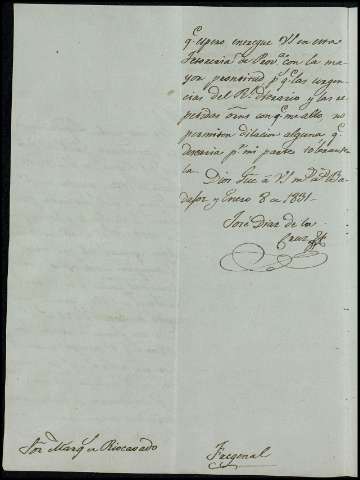 q.e espero entregue V.S. en esta
Tesoreria de Prov.a con la ma-
yor prontitud p.r q.e las urgen-
cias del R.l Erario y las re-
petidas orns con q.e me allo no
permiten dilacion alguna q.e
desearia p.r mi parte tolerarse
la.
Dios gue á V.S. m.s a.s Ba-
dajoz y Enero 8 de 1831.
José Diaz de la
Cruz
Sor Marq.s de Riocavado
Fregenal